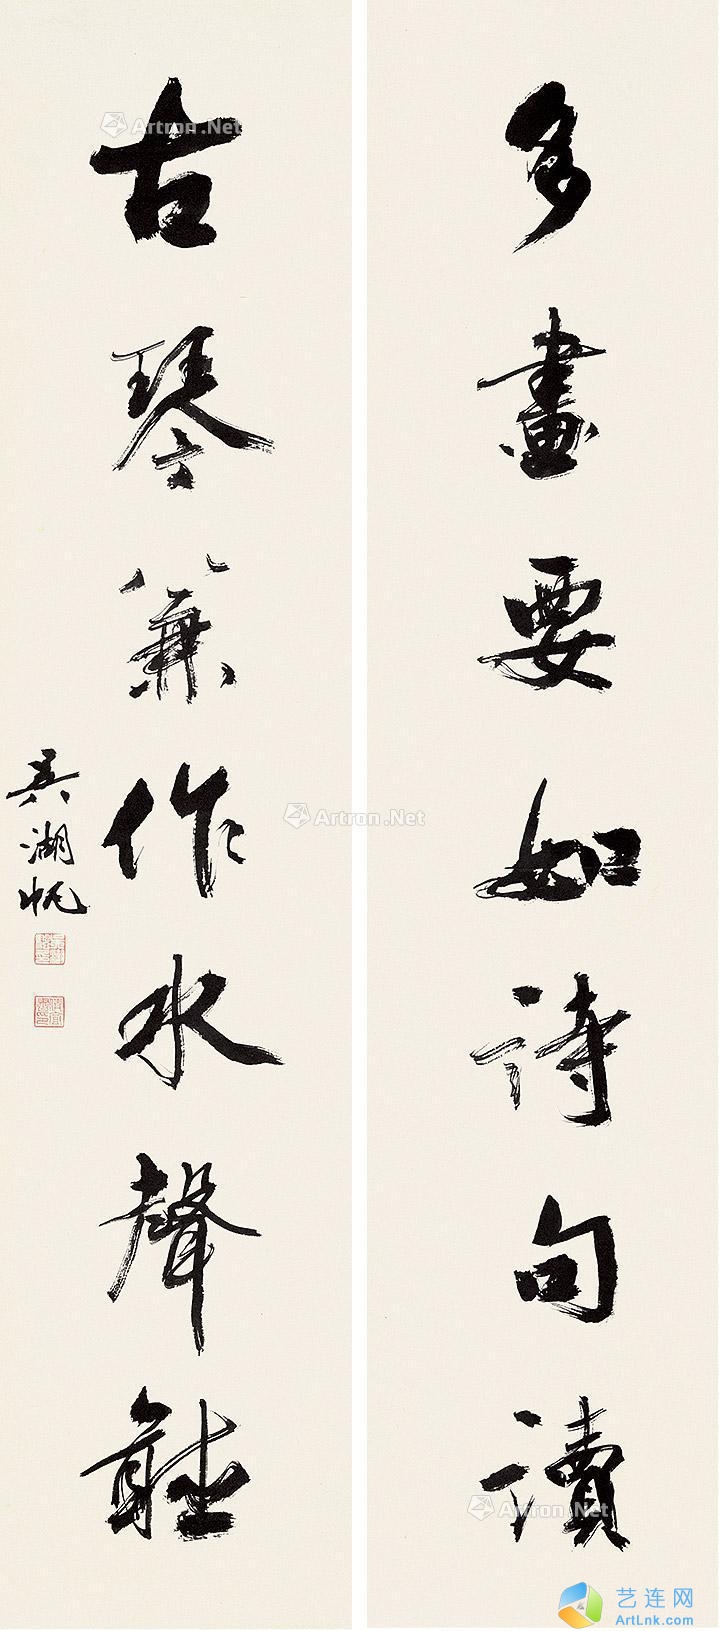 名畫要如詩句讀
古琴兼作水聲聽
吳湖帆
Artron.Net
Artron.Net
Artron.Net
艺连网
ArtLnk.com